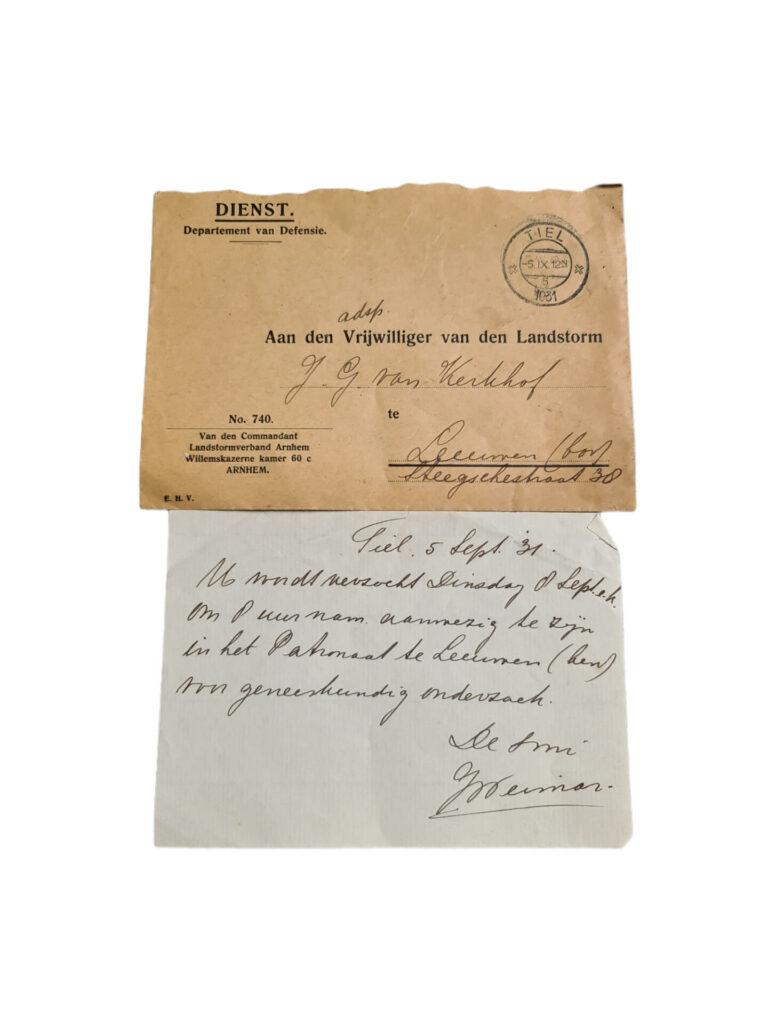 DIENST.
Departement van Defensie.
TIEL
-5.IX.12
1931
adsp.
Aan den Vrijwilliger van den Landstorm
J. G. van Kerkhof
te
No. 740.
Van den Commandant
Landstormverband Arnhem
Willemskazerne kamer 60 c
ARNHEM.
Leeuwen (bov)
Steegschestraat 38
E. H. V.
Tiel. 5 Sept. '31.
U wordt verzocht Dinsdag 8 Sept. e.k.
om 8 uur nam. aanwezig te zijn
in het Patronaat te Leeuwen (ben)
voor geneeskundig onderzoek.
De Smi
JWeimar.